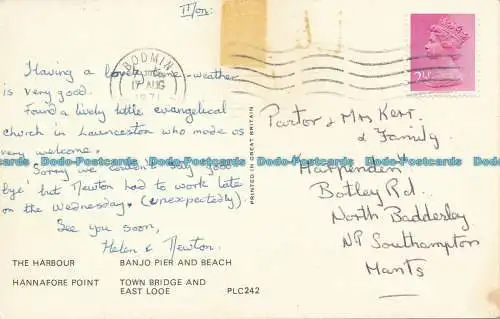 II/on:
BODMIN
17 AUG
1971
2½P
Having a lovely time - weather
is very good.
Found a lively little evangelical
church in Launceston who made us
very welcome.
Sorry we couldn't say good-
bye but Newton had to work late
on the Wednesday. (unexpectedly).
See you soon,
Helen & Newton.
PRINTED IN GREAT BRITAIN
Pastor & Mrs Kerr
& Family
"Harpenden"
Botley Rd.
North Baddesley
NR Southampton
Hants
THE HARBOUR BANJO PIER AND BEACH
HANNAFORE POINT TOWN BRIDGE AND
EAST LOOE PLC242
Dodo-Postcards Dodo-Postcards Dodo-Postcards Dodo-Postcards Dodo-Postcards
Dodo-Postcards Dodo-Postcards Dodo-Postcards Dodo-Postcards Dodo-Postcards